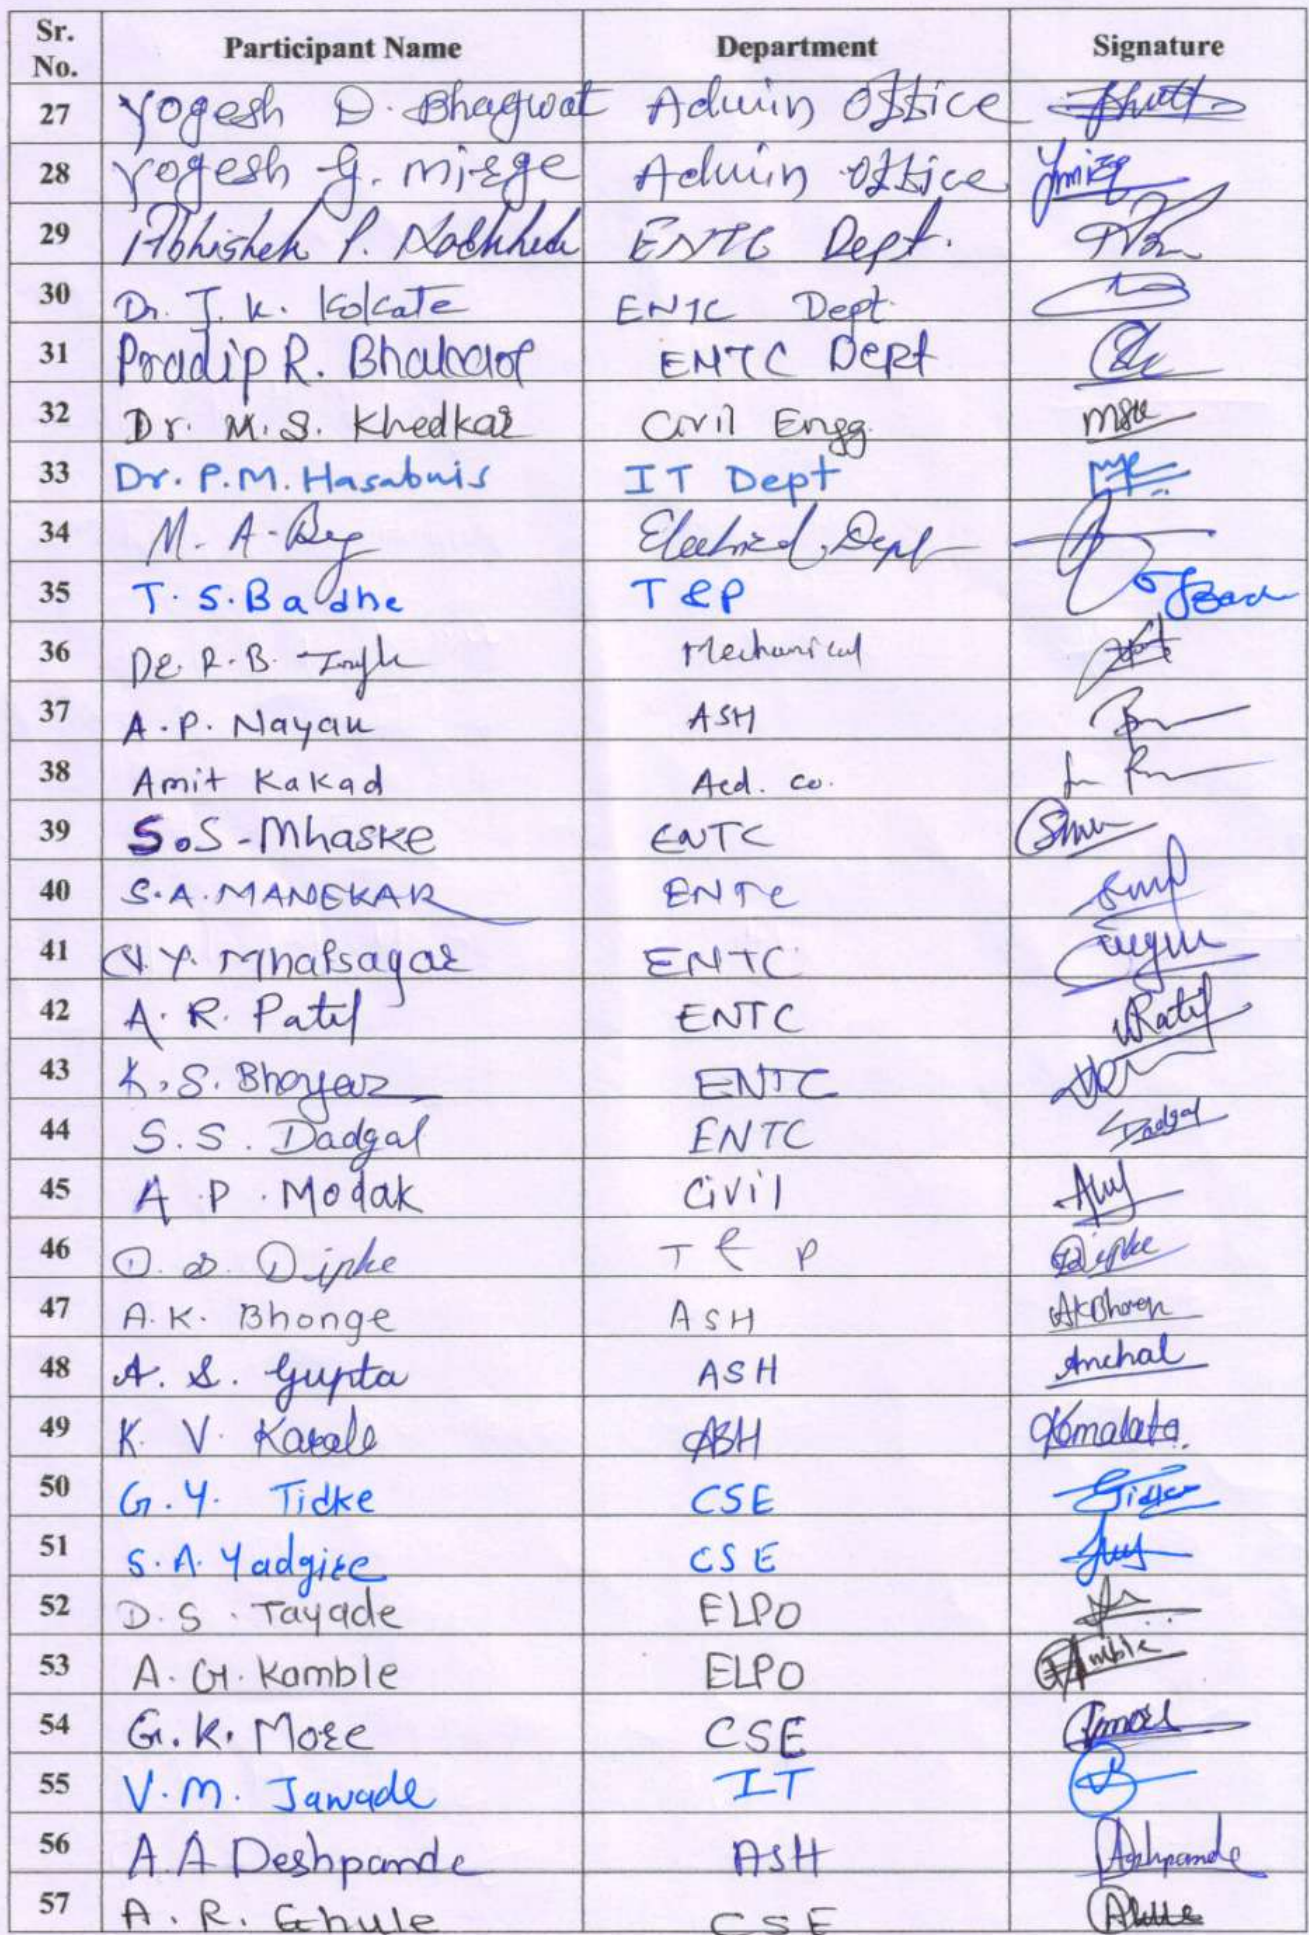 Sr. No. Participant Name Department Signature
27 Yogesh D. Bhagwat Admin Office
28 Yogesh G. Mirge Admin Office
29 Abhishek P. ENTC Dept.
30 Dr. J. K. Kolkate ENTC Dept.
31 Pradip R. ENTC Dept
32 Dr. M. S. Khedkar Civil Engg. MSK
33 Dr. P. M. Hasabnis IT Dept
34 M. A. Beg Electrical Dept
35 T. S. Badhe T & P
36 Dr. R. B. Mechanical
37 A. P. Nayak ASH
38 Amit Kakad Acd. Co.
39 S. S. Mhaske ENTC
40 S. A. MANEKAR ENTC
41 V. Y. Mhaisagar ENTC
42 A. R. Patil ENTC Patil
43 K. S. Bhoyar ENTC
44 S. S. Dadgal ENTC Dadgal
45 A. P. Modak Civil
46 D. D. Dipke T & P Dipke
47 A. K. Bhonge ASH AKBhonge
48 A. S. Gupta ASH Anchal
49 K. V. Karale ASH Komalata.
50 G. Y. Tidke CSE Tidke
51 S. A. Yadgire CSE
52 D. S. Tayade ELPO
53 A. G. Kamble ELPO
54 G. K. More CSE
55 V. M. Jawade IT
56 A. A Deshpande ASH
57 A. R. Ghule CSE